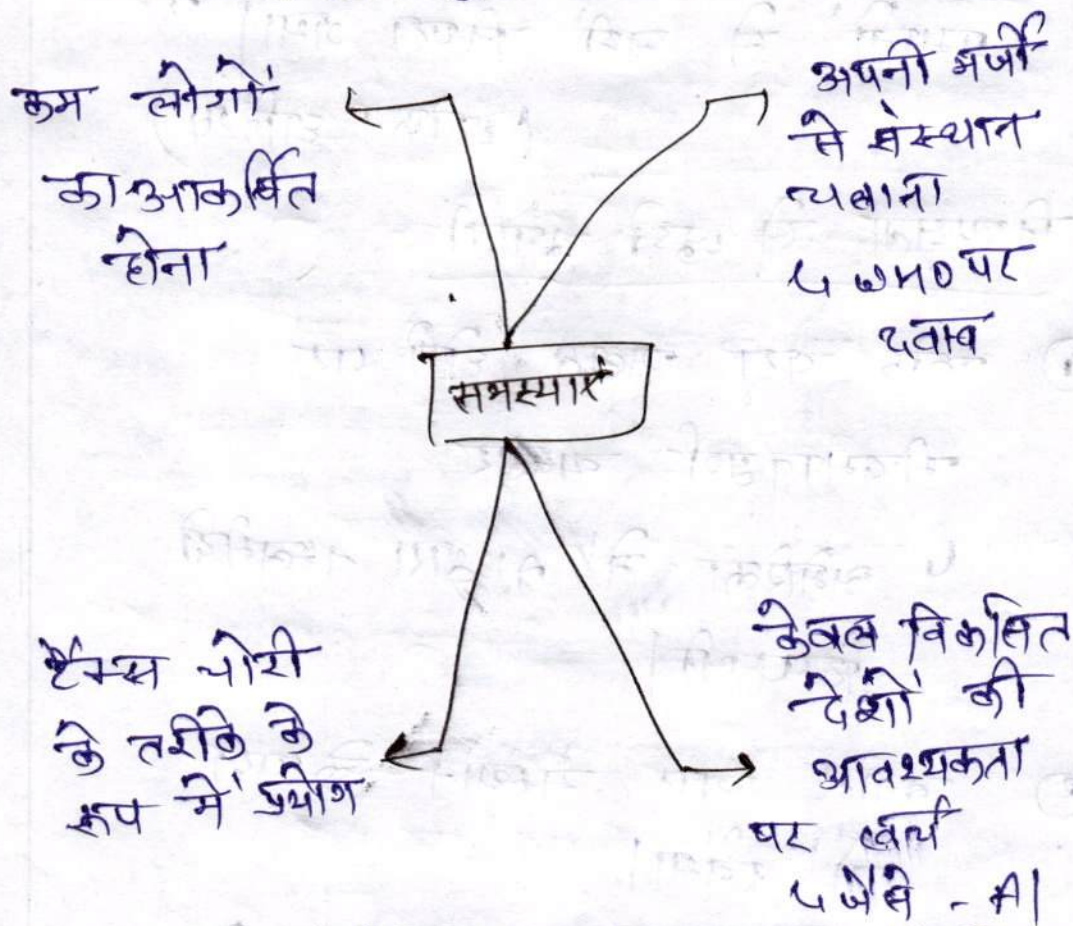 कम लोगों
का आकर्षित
होना
अपनी मर्जी
से संस्थान
चलाना
↳ WHO पर
दबाव
समस्याएं
टैक्स चोरी
के तरीके के
रूप में प्रयोग
केवल विकसित
देशों की
आवश्यकता
पर खर्च
↳ जैसे - AI